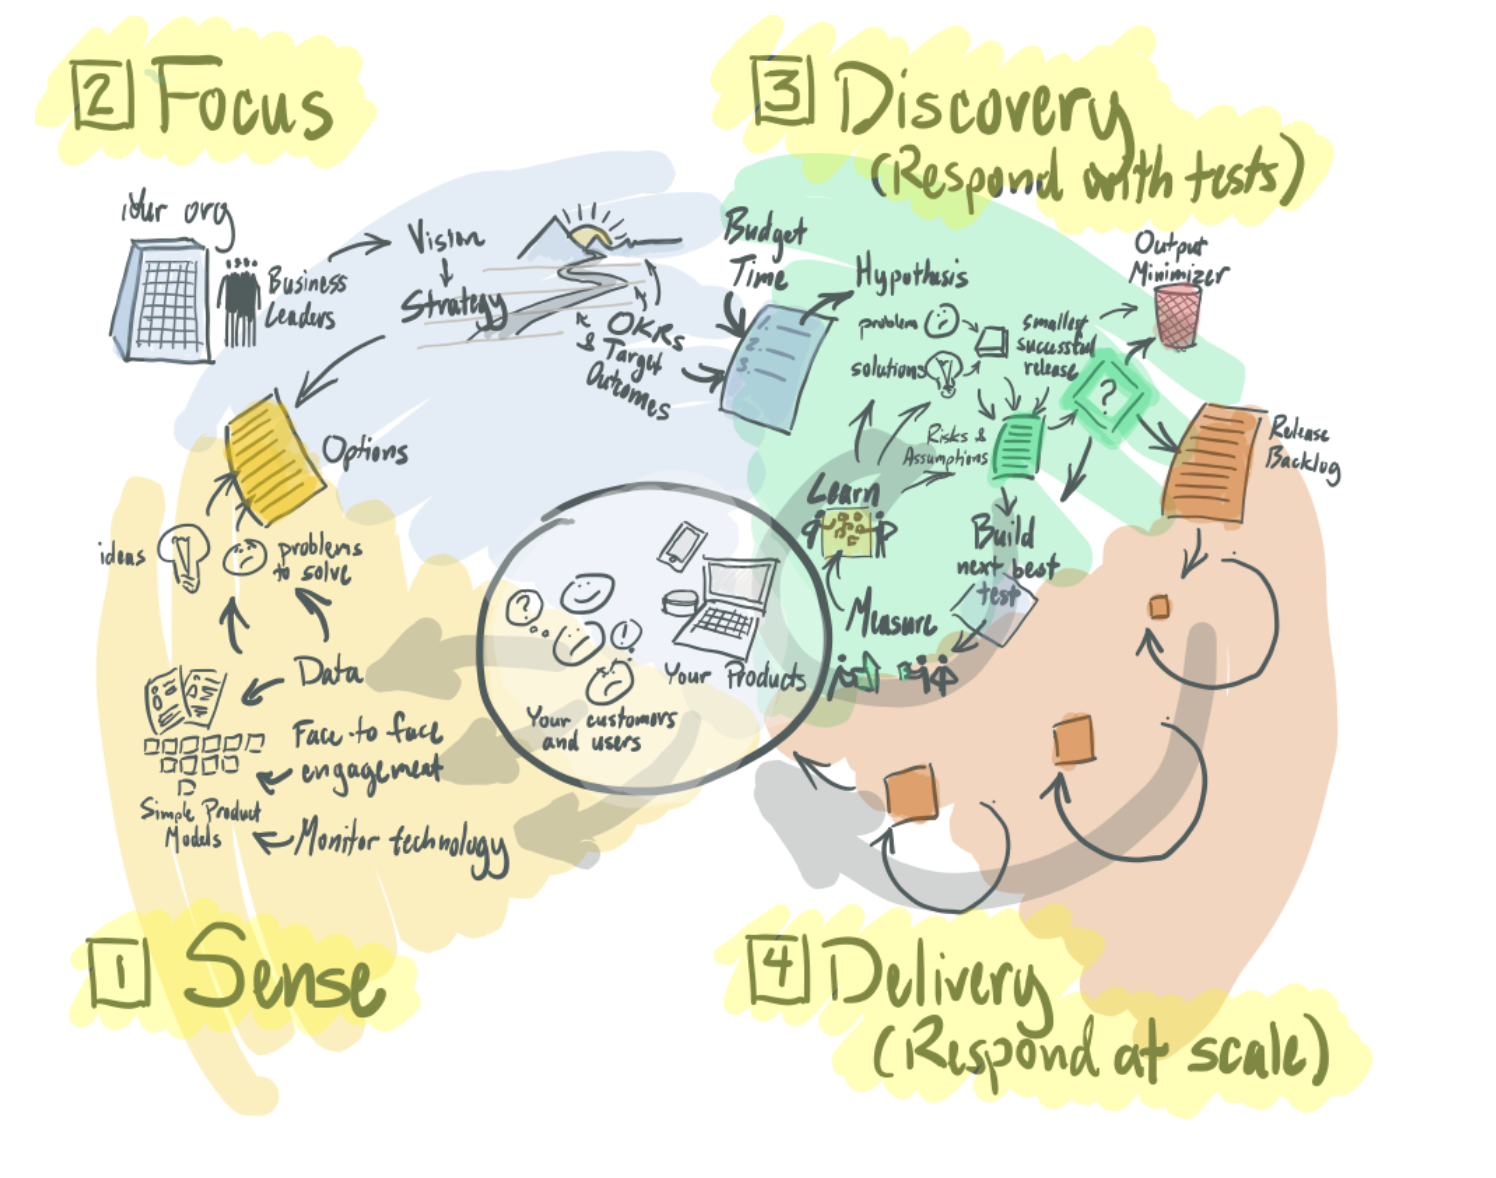 2 Focus
Your org
Business
Leaders
Vision
Strategy
OKRs
& Target
Outcomes
Options
ideas
problems
to solve
3 Discovery
(Respond with tests)
Budget
Time
1.
2.
3.
Hypothesis
problem
solutions
smallest
successful
release
Output
Minimizer
?
Risks &
Assumptions
Release
Backlog
Learn
Build
next best
test
Measure
?
!
Your Products
Your customers
and users
Data
Face to face
engagement
Monitor technology
Simple Product
Models
1 Sense
4 Delivery
(Respond at scale)